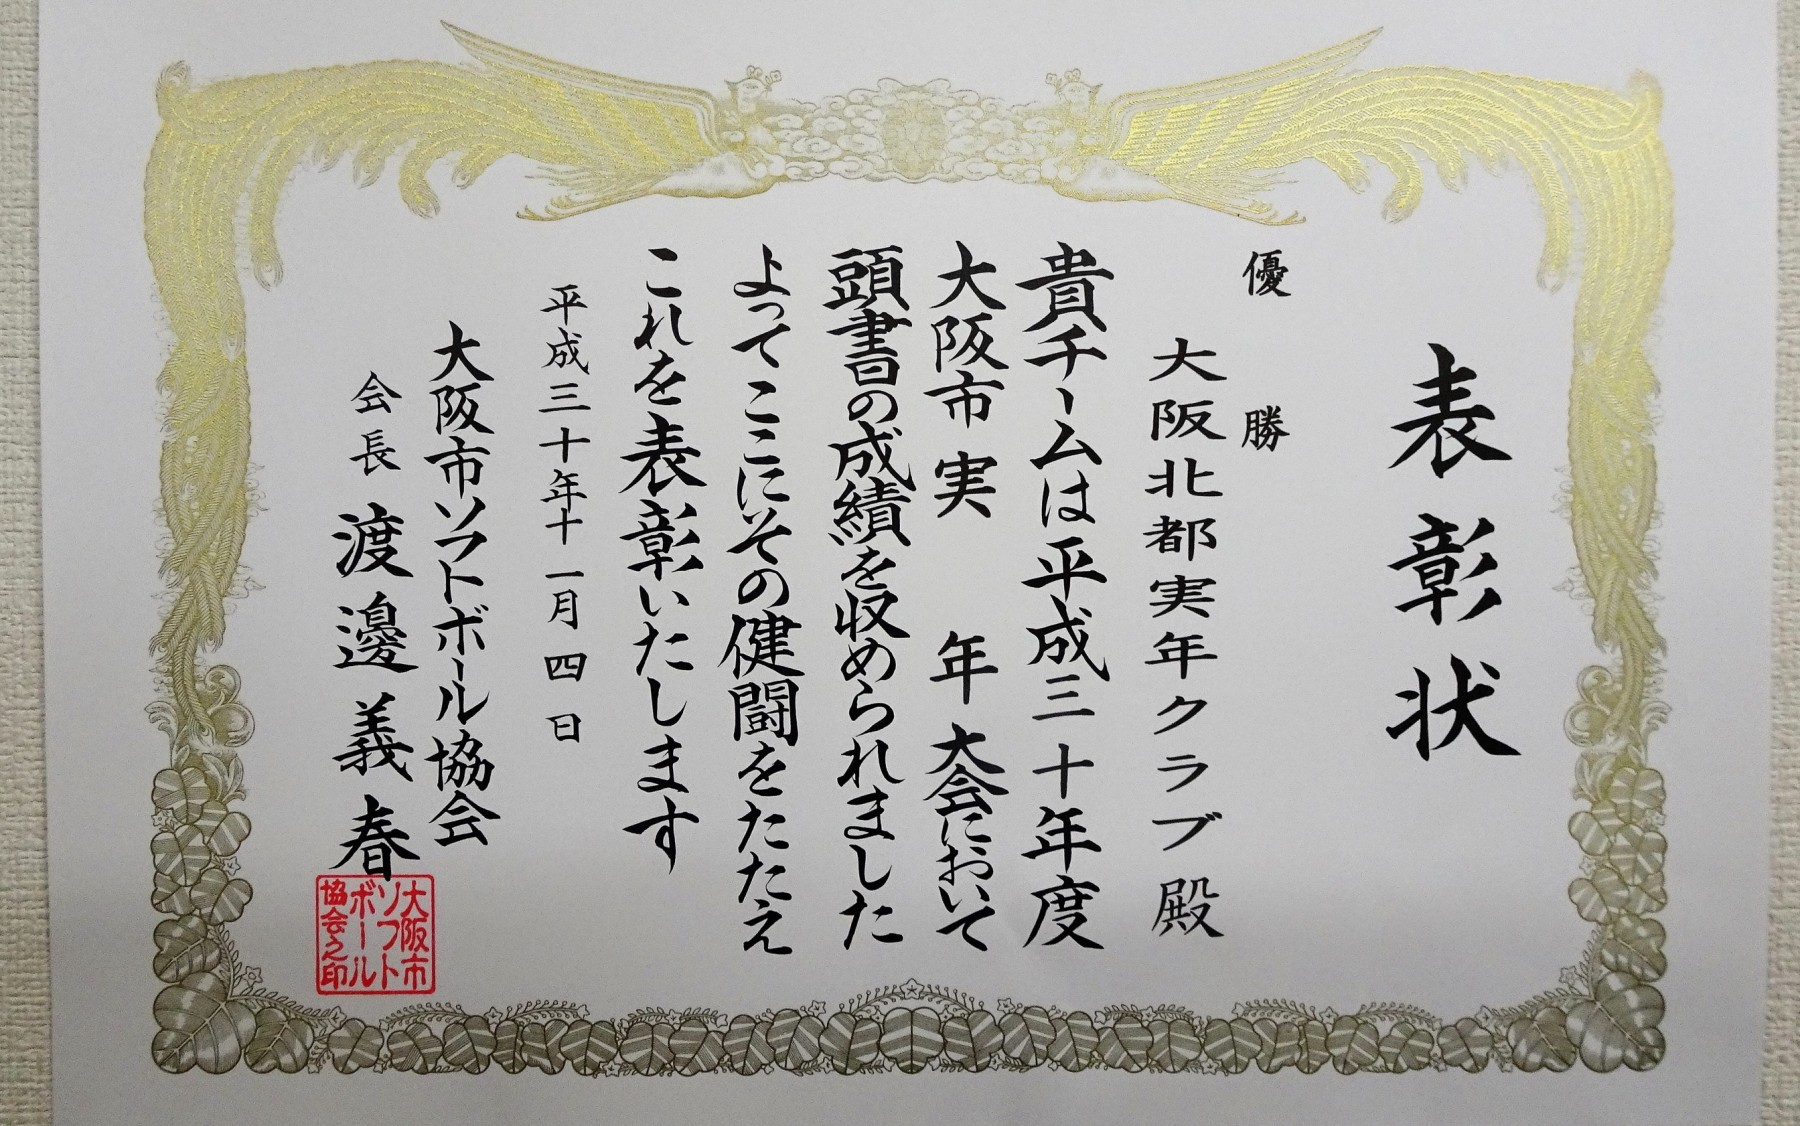 表彰状
優勝
大阪北都実年クラブ殿
貴チームは平成三十年度
大阪市実年大会において
頭書の成績を収められました
よってここにその健闘をたたえ
これを表彰いたします
平成三十年十一月四日
大阪市ソフトボール協会
会長 渡邊義春
大阪市
ソフト
ボール
協会之印